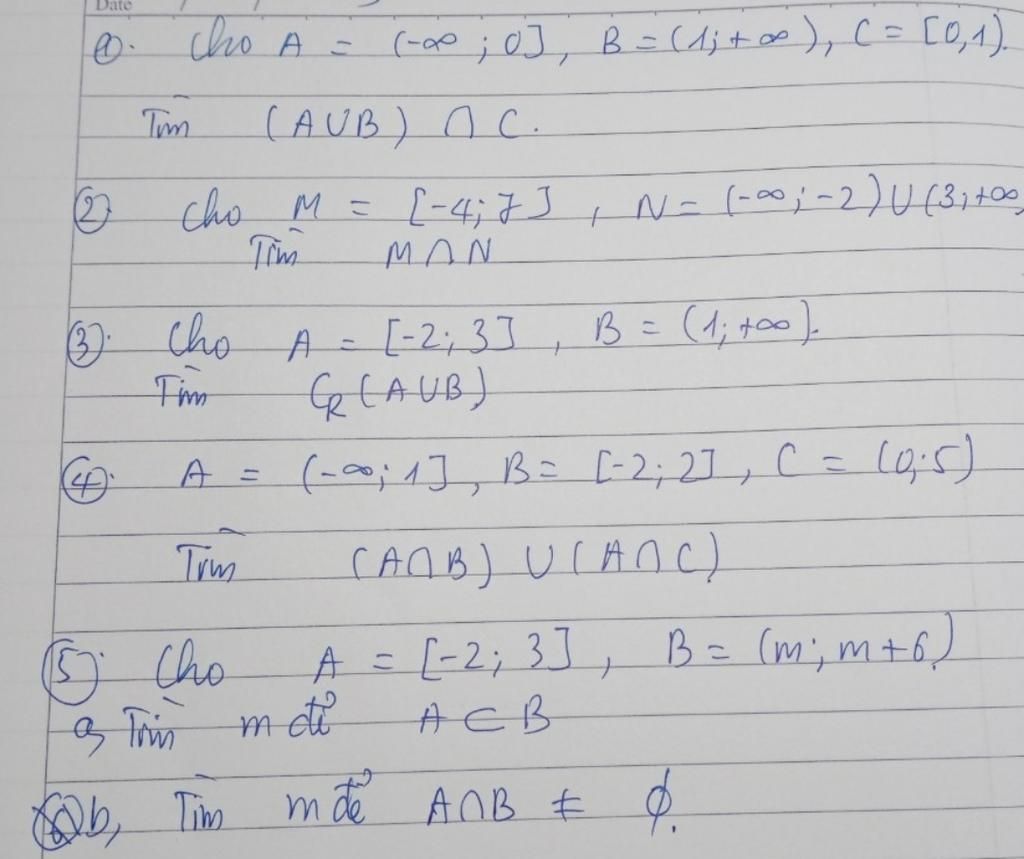 Date / /
①. Cho A = (-∞ ; 0], B = (1; +∞), C = [0,1).
Tìm (A∪B) ∩ C.
② Cho M = [-4; 7] , N = (-∞; -2) ∪ (3; +∞
Tìm M∩N
③. Cho A = [-2; 3] , B = (1; +∞).
Tìm C_R (A∪B)
④. A = (-∞; 1], B = [-2; 2], C = (0; 5)
Tìm (A∩B) ∪ (A∩C)
⑤. Cho A = [-2; 3], B = (m; m+6)
a, Tìm m để A ⊂ B
b, Tìm m để A∩B ≠ ∅.